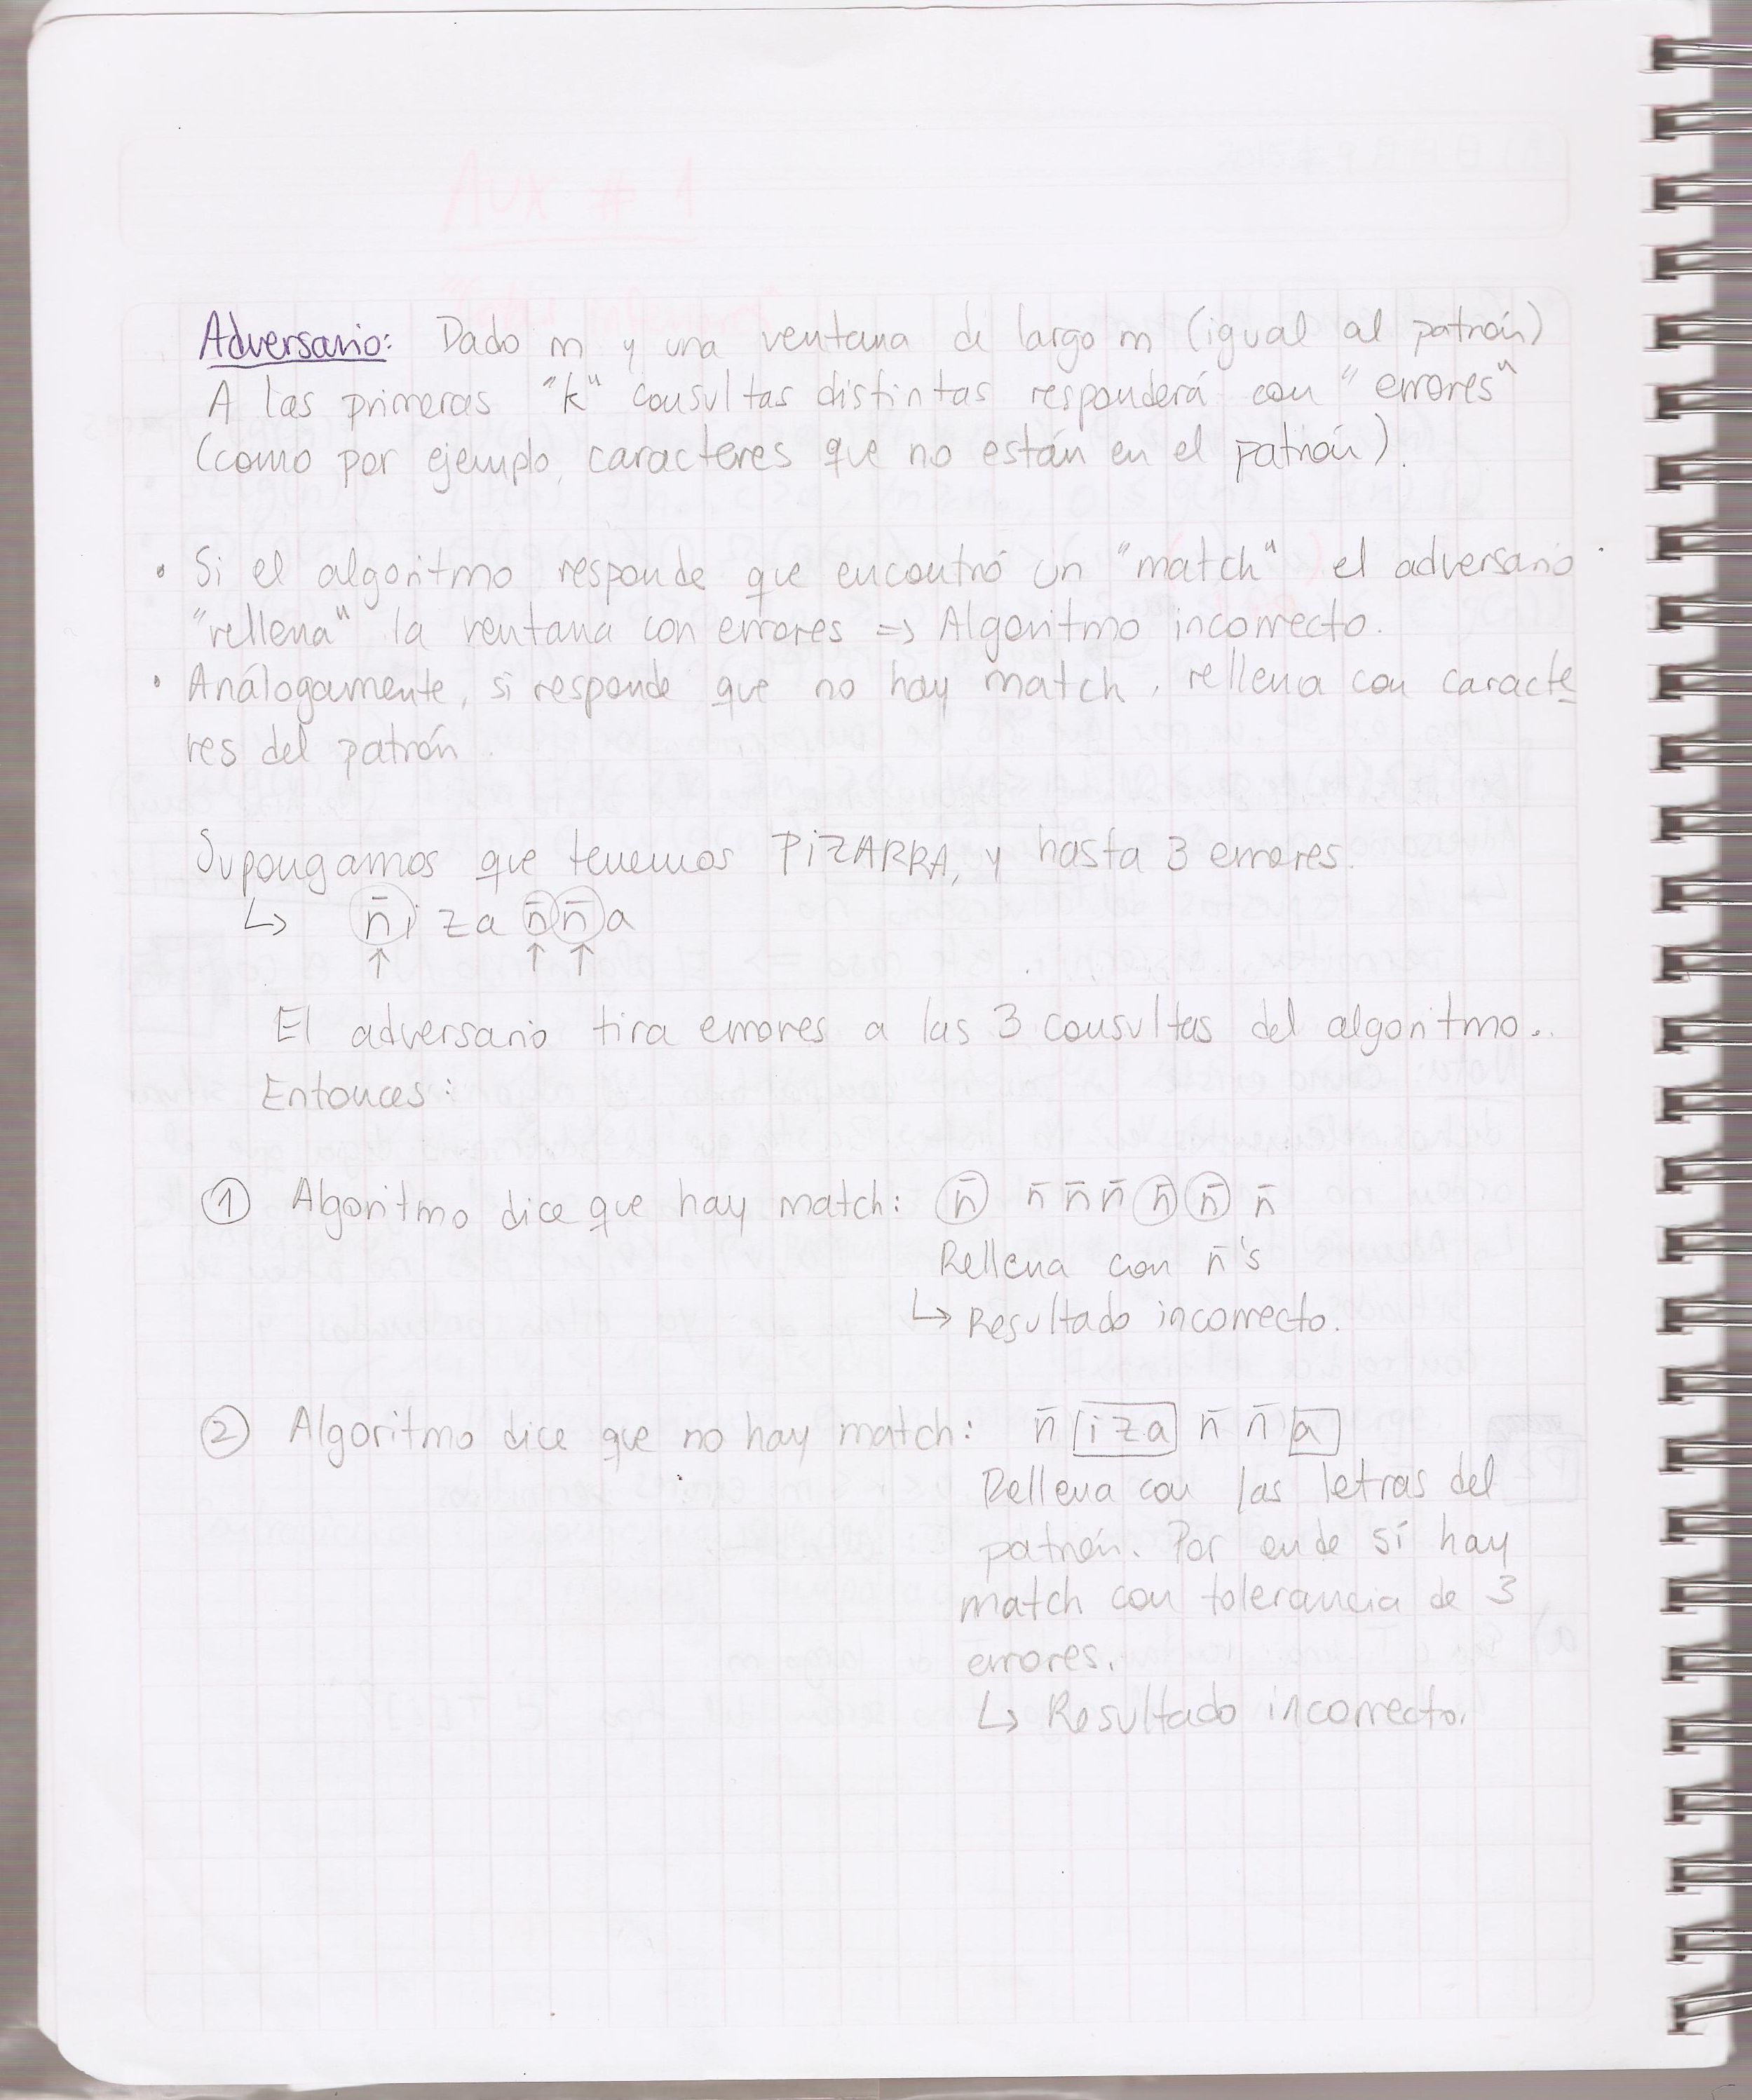 AUX # 1
Adversario: Dado m y una ventana de largo m (igual al patrón)
A las primeras "k" consultas distintas responderá con "errores"
(como por ejemplo, caracteres que no están en el patrón).
• Si el algoritmo responde que encontró un "match" el adversario
"rellena" la ventana con errores => Algoritmo incorrecto.
• Análogamente, si responde que no hay match, rellena con caracte
res del patrón.
Supongamos que tenemos PiZARRA, y hasta 3 errores.
↳ ñ i z a ñ ñ a
↑ ↑ ↑
El adversario tira errores a las 3 consultas del algoritmo..
Entonces:
① Algoritmo dice que hay match: ñ ñ ñ ñ ñ ñ ñ
Rellena con ñ's
↳ Resultado incorrecto.
② Algoritmo dice que no hay match: ñ i z a ñ ñ a
Rellena con las letras del
patrón. Por ende sí hay
match con tolerancia de 3
errores.
↳ Resultado incorrecto.